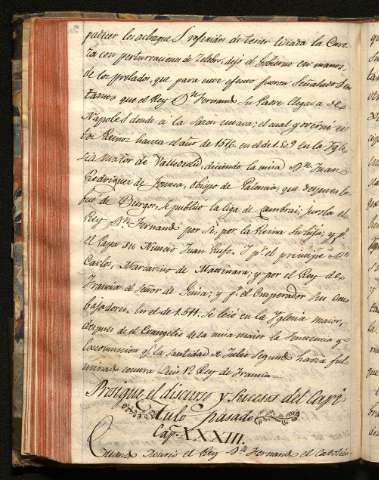 la Co
con perturvacion de dejò el Govierno en manos
de los prelados, que para este efecto fueron señalados
tantes que el Rey Dn Fernando su Padre llega a de
Napoles donde a la sazon estava: el qual governò es
tos Reinos hasta el año de 1516. en el de 1509 en la Ygle
sia maior de Valladolid diciendo la misa Dn Juan
Rodriguez de Fonseca, obispo de Palencia, que despues lo
fue de Burgos. Se publicò la liga de Cambrai; por la el
Rey Dn Fernando por si, por la Reina su hija; y pr
el Papa su Nuncio Juan Rufo. Y pr el principe Dn
Carlos, Mercurino de Gattinara; y por el Rey de
Francia el Señor de Guisa; y pr el Emperador su Em
bajador. En el de 1511. Se leiò en la Yglesia maior,
despues de el Evangelio de la misa maior la sentencia y
excomunion q la santidad de Julio Segundo havia ful
minado contra Luis 12 Rey de Francia.
Prosigue el discurso y sucesos del Capi
tulo pasado
Cap. LXXIII.
el Rey Dn Fernando el Catolico